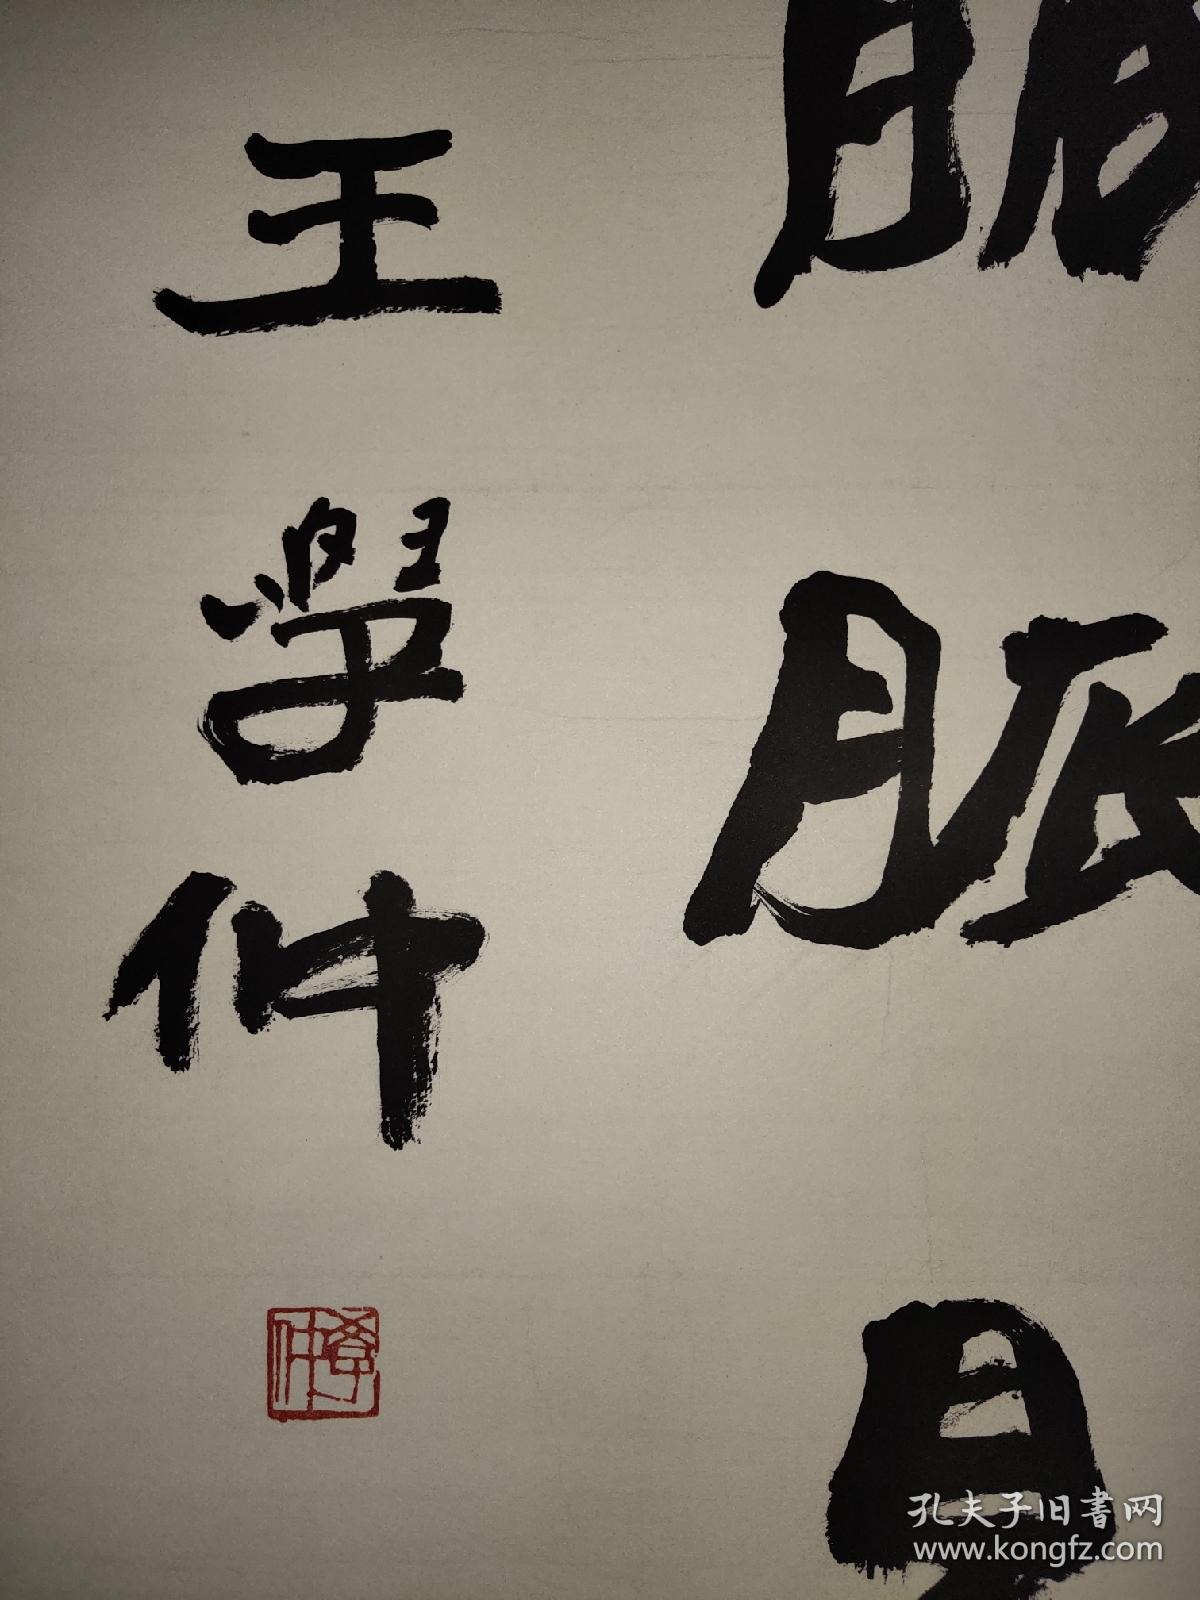 脈
王學仲
學仲
孔夫子旧書网
www.kongfz.com